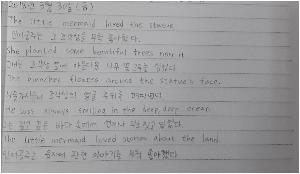 2018년 5월 30일 (수)
The little mermaid loved the statue.
인어공주는 그 조각상을 무척 좋아했다.
She planted some beautiful trees near it
그녀는 조각상 옆에 아름다운 나무 몇 그루를 심었다.
The branches flowers around the statue's face.
조각상의 얼굴 주위를
He was always smiling in the deep, deep ocean.
그는 깊고 깊은 바다 속에서 언제나
The little mermaid loved stories about the land.
인어공주는 육지에 관한 이야기를 무척 좋아했다